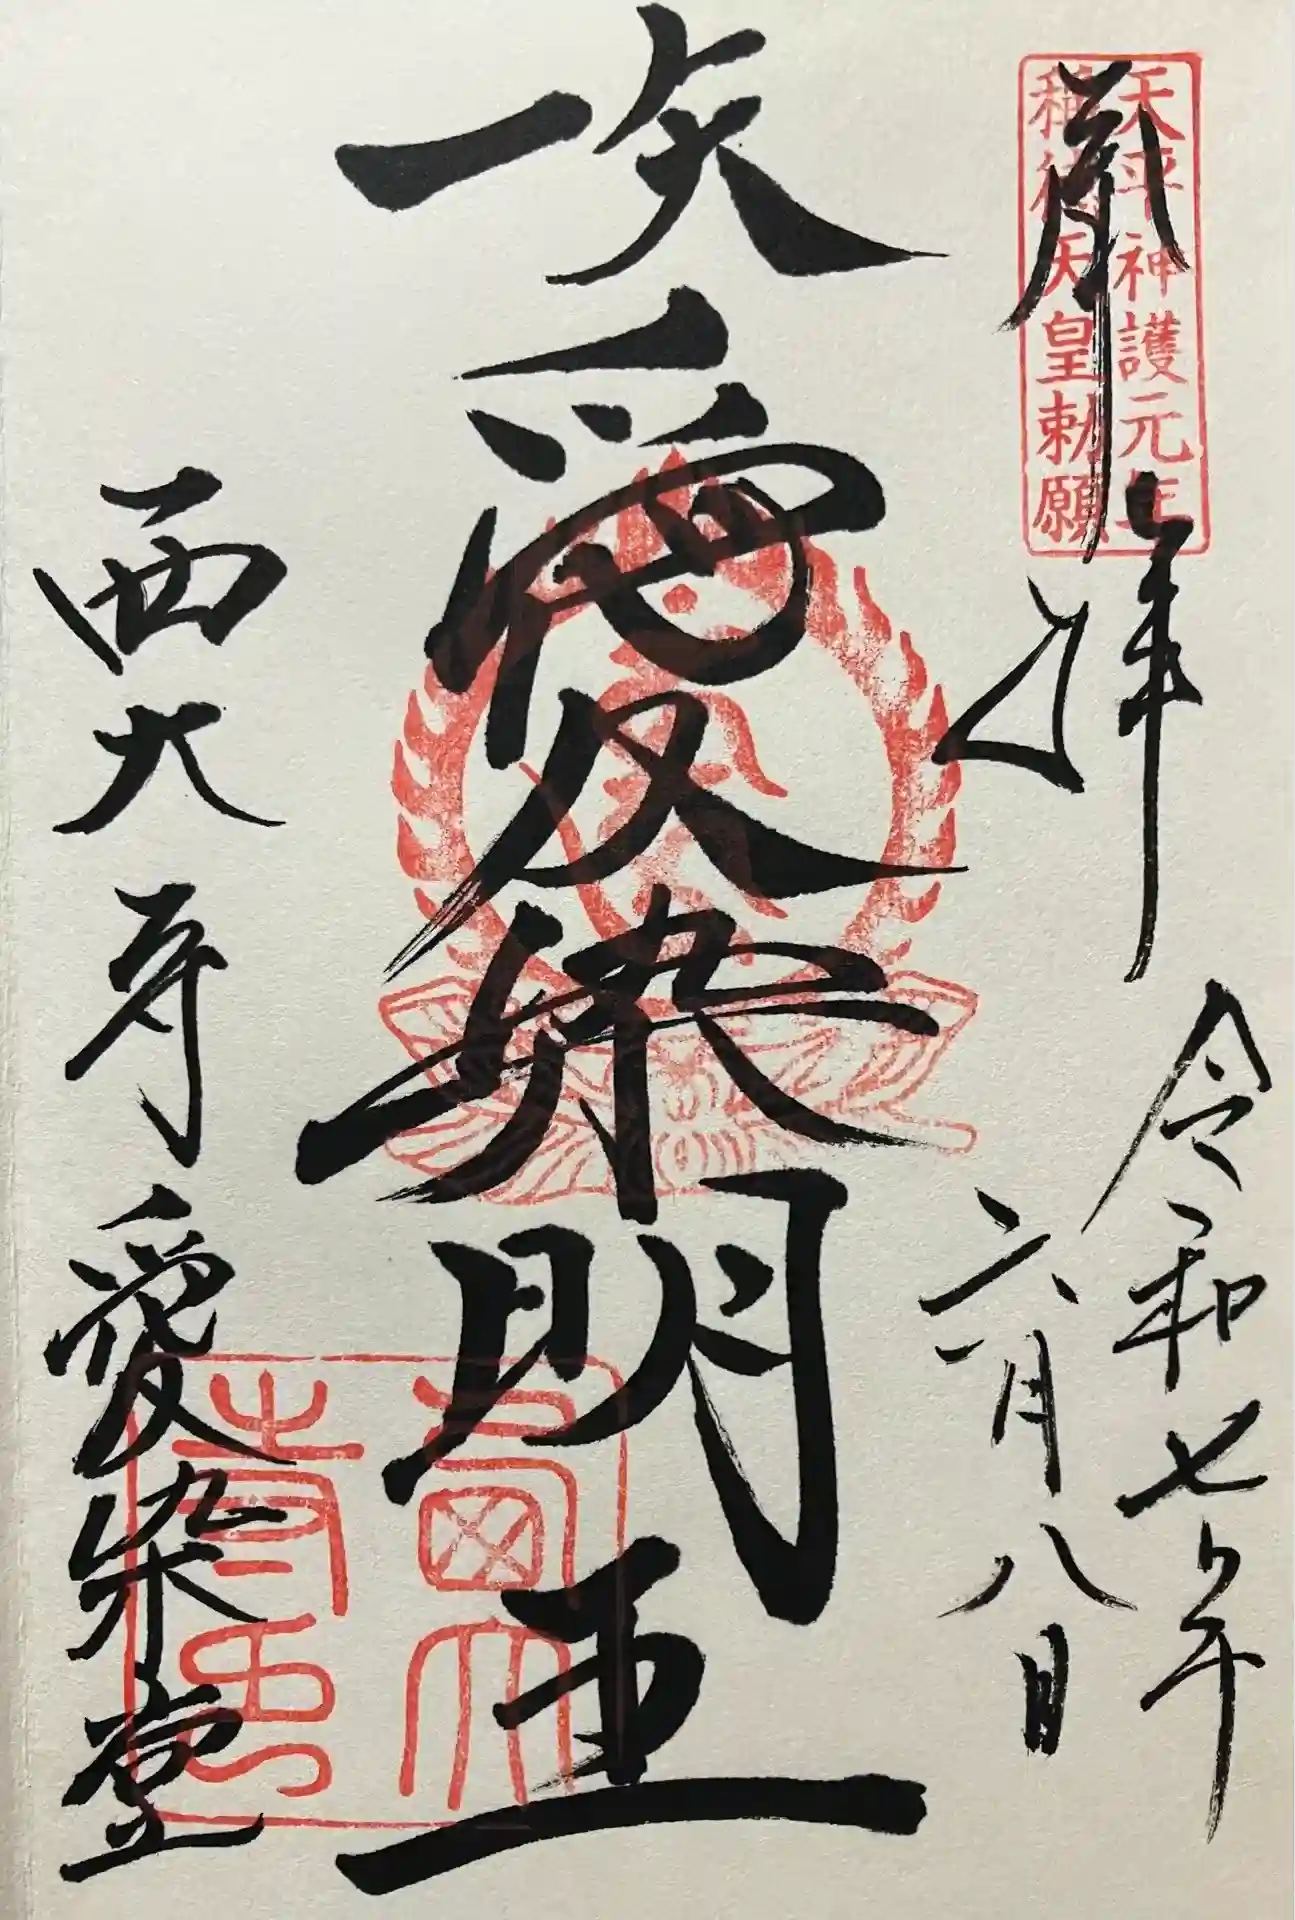 天平神護元年
稱徳天皇勅願
奉拝
令和七年
六月八日
愛染明王
西大寺愛染堂